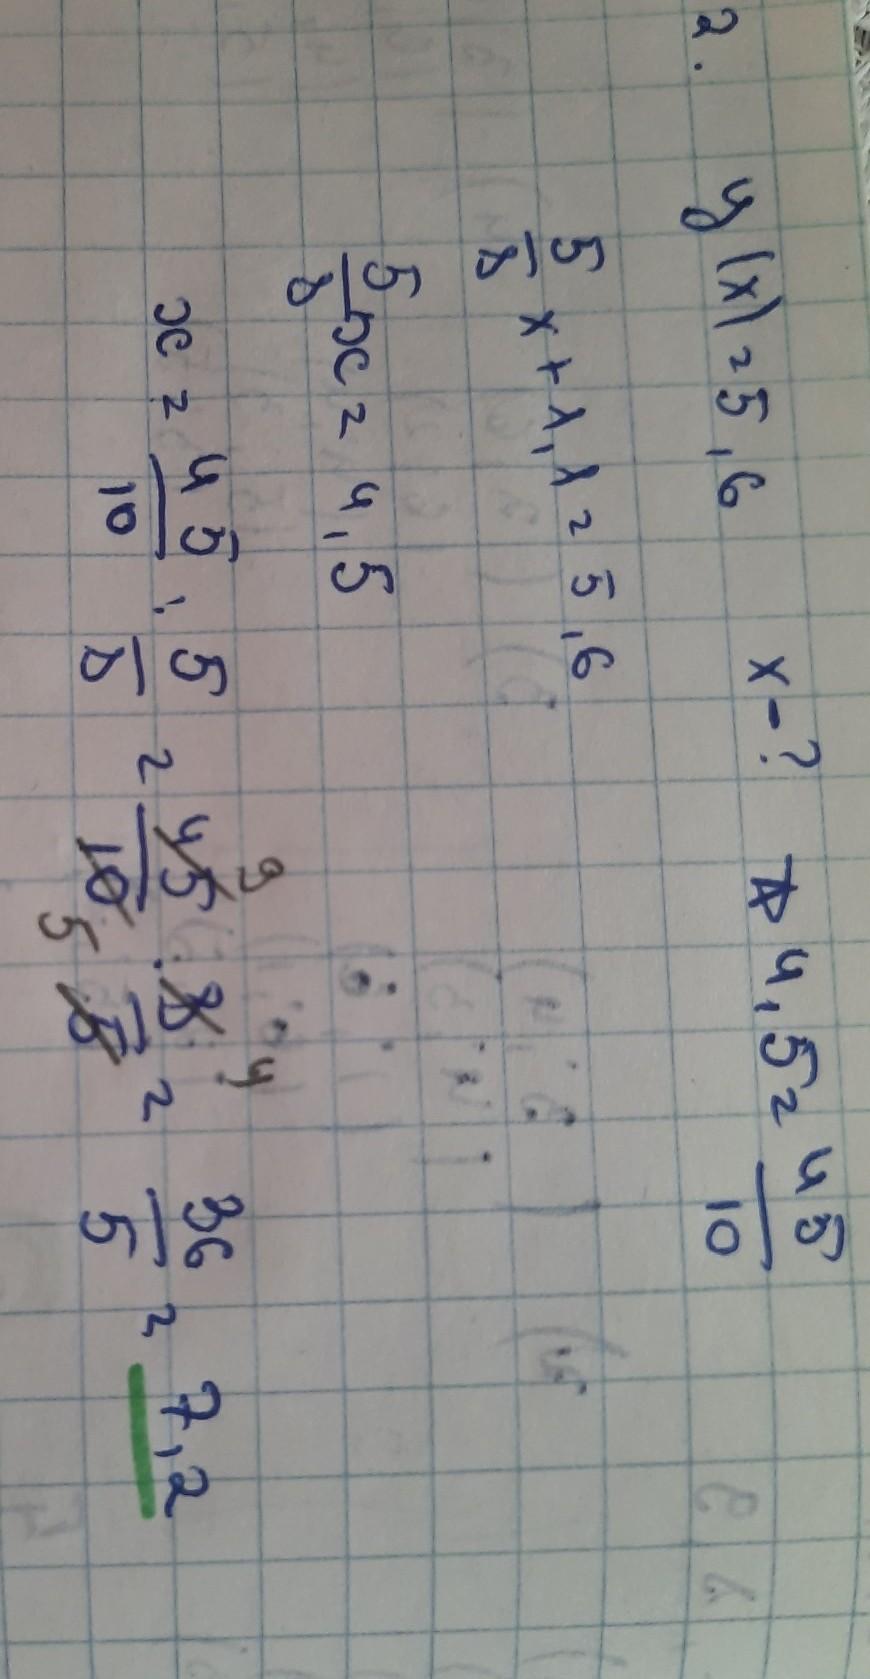 2. y(x) = 5,6 x - ? 4,5 = 45/10
5/8 x + 1,1 = 5,6
5/8 x = 4,5
x = 45/10 : 5/8 = 45/10 · 8/5 = 36/5 = 7,2
9 4
5